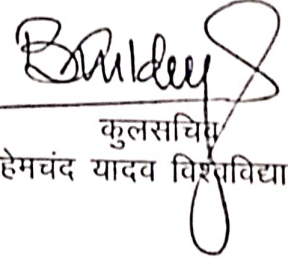 कुलसचिव
हेमचंद यादव विश्वविद्या